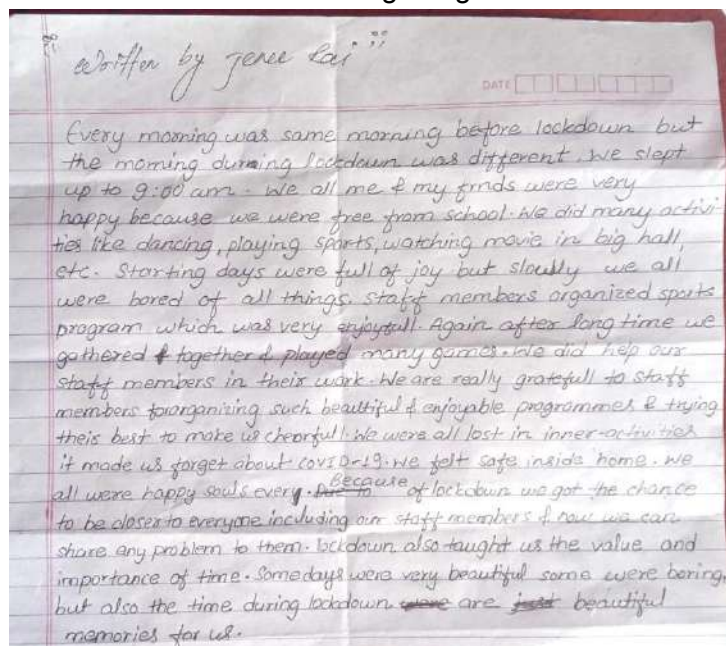 written by Jenee Rai
DATE
Every morning was same morning before lockdown but
the morning during lockdown was different. We slept
up to 9:00 am. We all me & my frnds were very
happy because we were free from school. We did many activi-
ties like dancing, playing sports, watching movie in big hall,
etc. Starting days were full of joy but sloully we all
were bored of all things. staff members organized sports
program which was very enjoyfull. Again after long time we
gathered together & played many games. We did help our
staff members in their work. We are really gratefull to staff
members fororganizing such beautiful & enjoyable programmes & trying
theis best to make us cheerfull. We were all lost in inner-activities
it made us forget about COVID-19. We felt safe inside home. We
all were happy souls every. Because of lockdown we got the chance
to be closer to everyone including our staff members & now we can
share any problem to them. lockdown also taught us the value and
importance of time. Some days were very beautiful some were boring,
but also the time during lockdown are beautiful
memories for us.